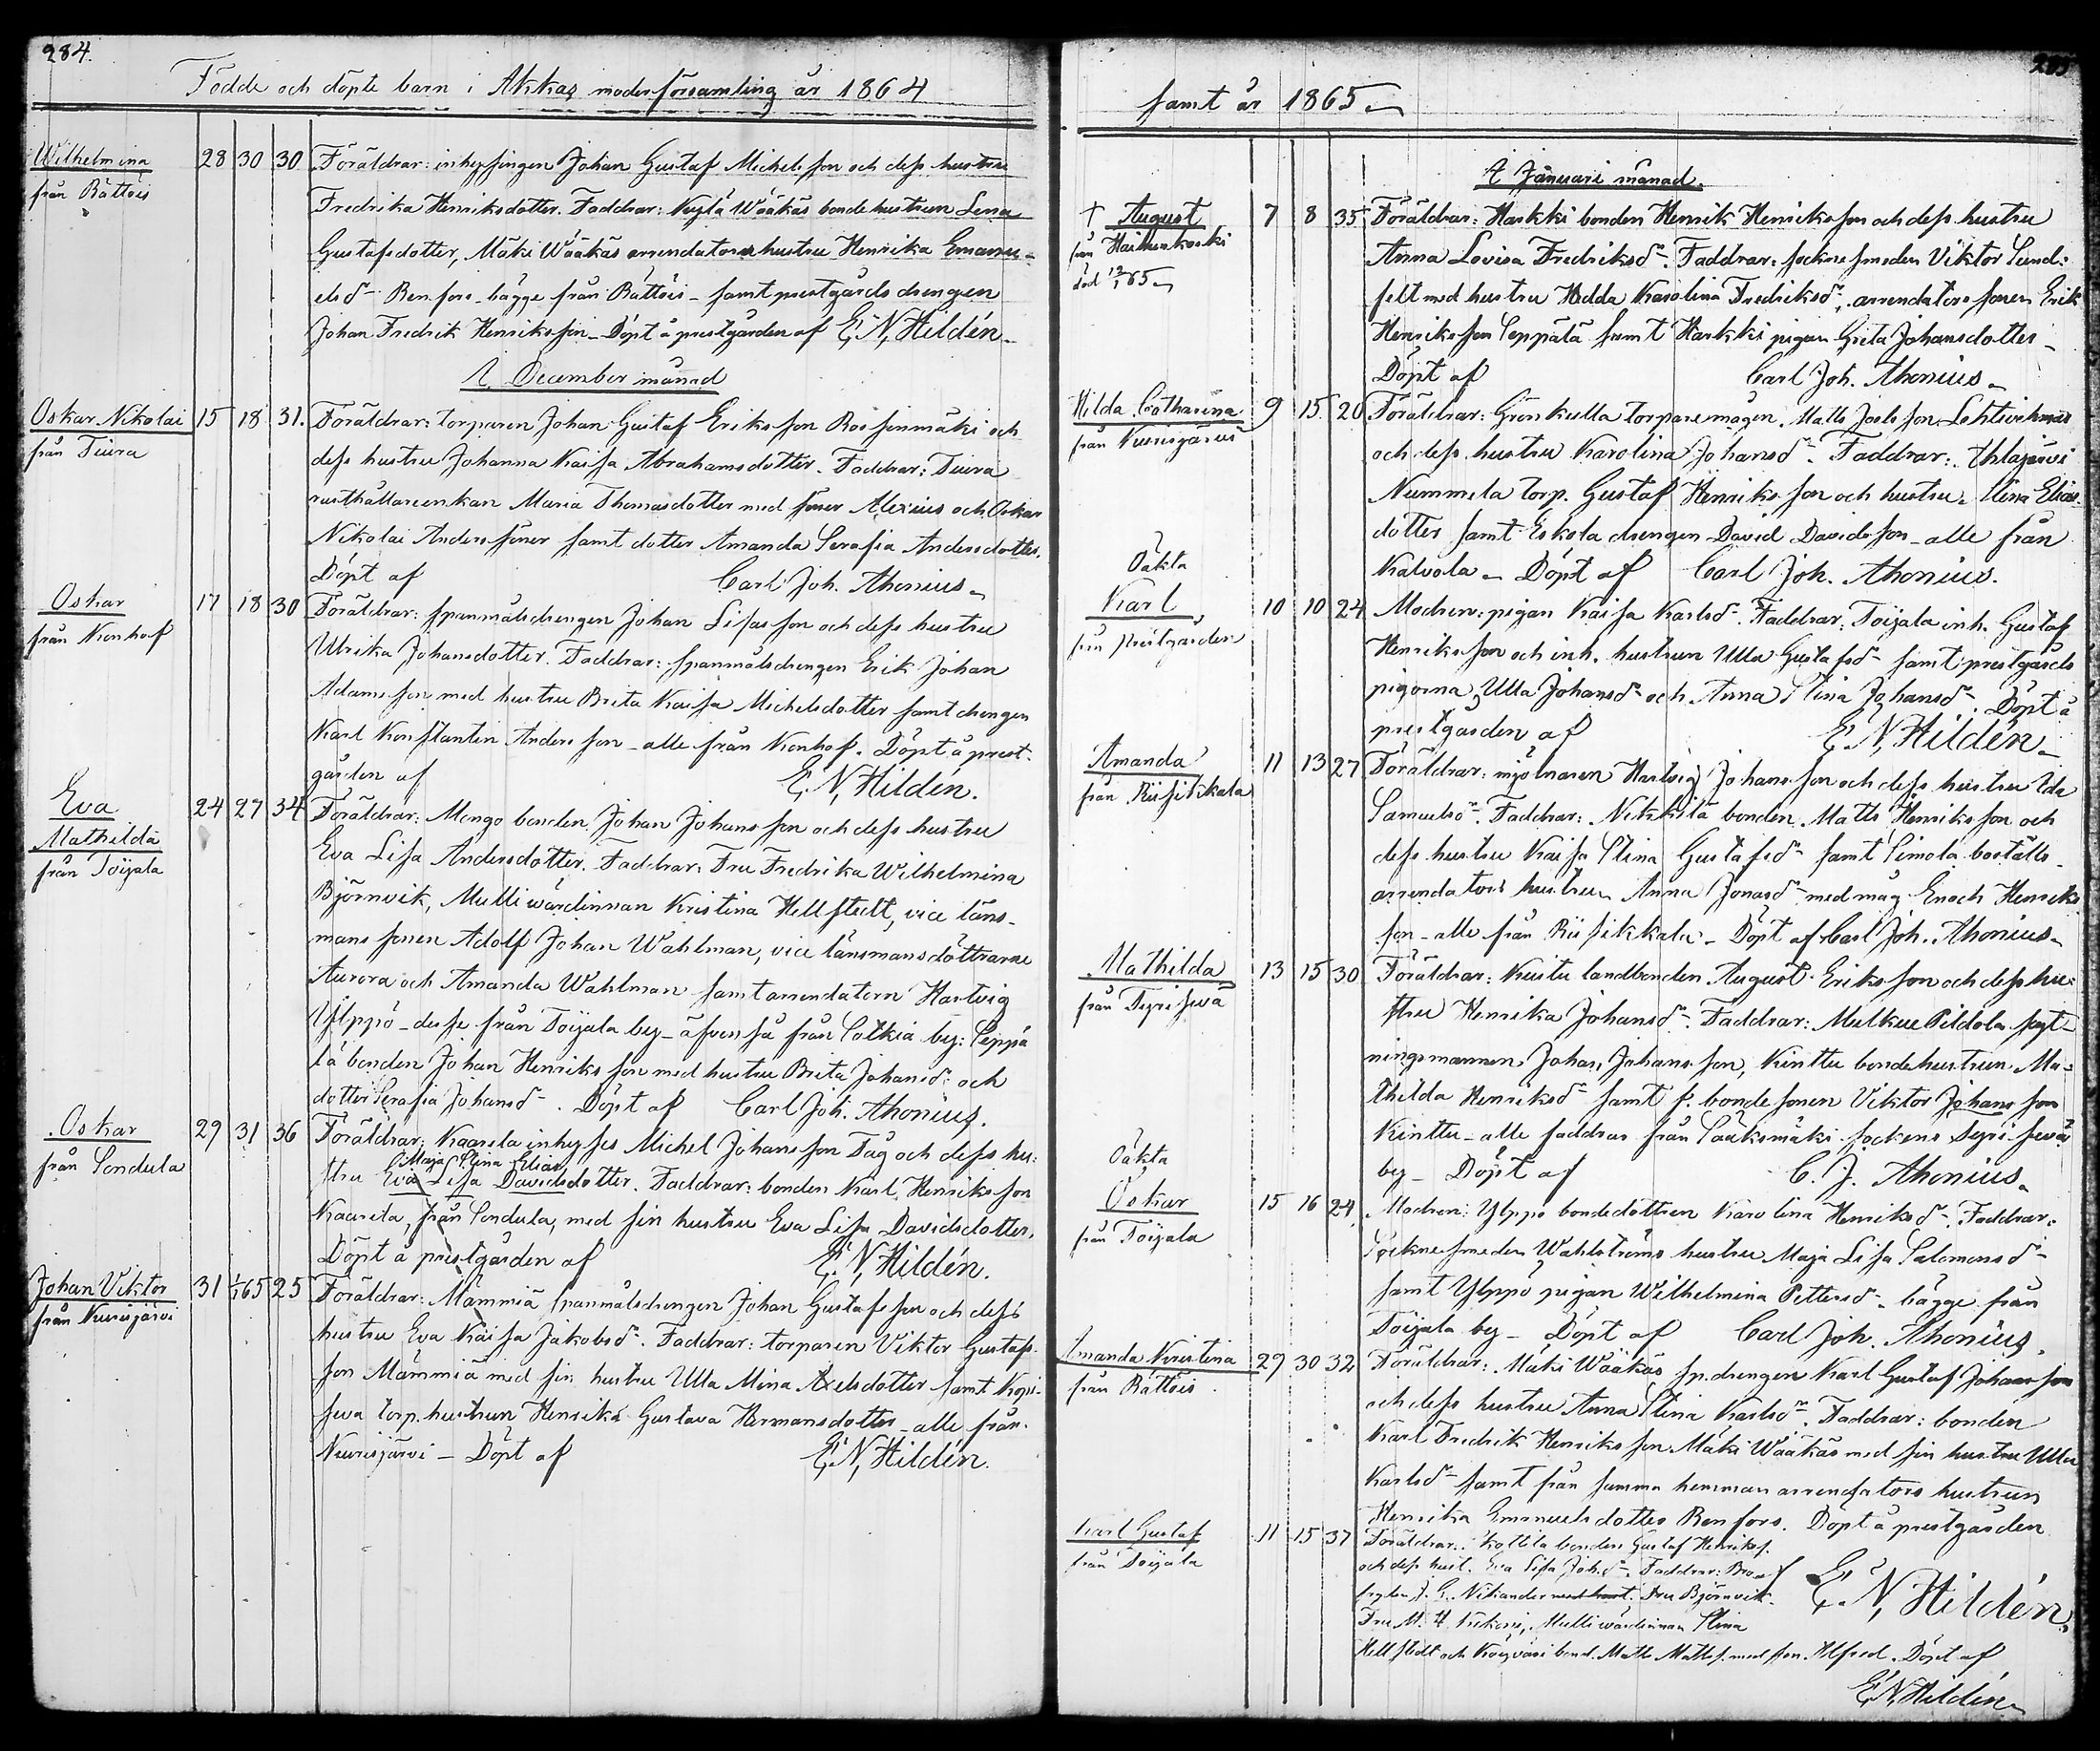 284.
Födde och döpte barn i Akkas moderförsamling år 1864
Wilhelmina
från Rättöis
28 30 30 Föräldrar: inhysingen Johan Gustaf Michelsson och dess hustru
Fredrika Henriksdotter. Faddrar: Wääkäs bondehustrun Lena
Gustafsdotter, Mäki Wääkäs arrendators hustru Henrika Emanu-
elsdr Renfors bägge från Rättöis samt prestgårds drengen
Johan Fredrik Henriksson. Döpt å prestgården af E. N. Hildén.
I December månad
Oskar Nikolai
från Tiura
15 18 31. Föräldrar: torparen Johan Gustaf Eriksson och
dess hustru Johanna Kaisa Abrahamsdotter. Faddrar: Tiura
rusthållareenkan Maria Thomasdotter med söner Alexius och Oskar
Nikolai Anderssöner samt dotter Amanda Serafia Andersdotter.
Döpt af Carl Joh. Ahonius
Oskar
från Konhof
17 18 30 Föräldrar: spanmålsdrengen Johan Lisasson och dess hustru
Ulrika Johansdotter. Faddrar: spanmålsdrengen Erik Johan
Adamsson med hustru Brita Kaisa Michelsdotter samt drengen
Karl Konstantin Andersson – alle från Konhof. Döpt å prest-
gården af E. N. Hildén.
Eva
Mathilda
från Toijala
24 27 34 Föräldrar: Mongo bonden Johan Johansson och dess hustru
Eva Lisa Andersdotter. Faddrar: Fru Fredrika Wilhelmina
Björnvik, Mulli wärdinnan Kristina Hellstedt, vice läns-
mans sonen Adolf Johan Wahlman, vice länsmansdöttrarne
Aurora och Amanda Wahlman samt arrendatorn Hartvig
Ylppö – desse från Toijala by – äfvenså från Sotkia by: Seppä
lä bonden Johan Henriksson med hustru Brita Johansdr och
dotter Serafia Johansdr. Döpt af Carl Joh. Ahonius.
Oskar
från Sondula
29 31 36 Föräldrar: Kaarela inhyses Michel Johansson Tåg och dess hu-
Maja Stina Elias
stru Eva Lisa Davidsdotter. Faddrar: bonden Karl Henriksson
Kaarila, från Sondula, med sin hustru Eva Lisa Davidsdotter.
Döpt å prestgården af E. N. Hildén.
Johan Viktor
från Kurisjärvi
31 1/1 65 25 Föräldrar: Mämmiä spanmålsdrengen Johan Gustafsson och dess
hustru Eva Kaisa Jakobsdr. Faddrar: torparen Viktor Gustafs-
son Mämmiä med sin hustru Ulla Mina Axelsdotter samt
torp.hustrun Henrika Gustava Hermansdotter – alle från
Kurisjärvi – Döpt af E. N. Hildén.
285
samt år 1865
I Januari månad.
† August
från
död 65
7 8 35 Föräldrar: Harkki bonden Henrik Henriksson och dess hustru
Anna Lovisa Fredriksdr. Faddrar: sockne smeden Viktor Sund-
felt med hustru Hedda Karolina Fredriksdr, arrendators sonen Erik
Henriksson Seppälä samt Harkki pigan Greta Johansdotter
Döpt af Carl Joh. Ahonius
Hilda Catharina
från Kurisjärvi
9 15 20 Föräldrar: Grönkulla torparemågen Matts Joelsson
och dess hustru Karolina Johansdr. Faddrar: Ahlajärvi
Nummela torp. Gustaf Henriksson och hustru Stina Elias-
dotter samt Eskola drengen David Davidsson – alle från
Kalvola – Döpt af Carl Joh. Ahonius.
Oäkta
Karl
från prestgården
10 10 24 Modren: pigan Kaisa Karlsdr. Faddrar: Toijala inh. Gustaf
Henriksson och inh. hustrun Ulla Gustafsdr samt prestgårds
pigorna Ulla Johansdr och Anna Stina Johansdr. Döpt å
prestgården af E. N. Hildén
Amanda
från Riisikkala
11 13 27 Föräldrar: mjölnaren Hartvig Johansson och dess hustru Ida
Samuelsdr. Faddrar: Nikkilä bonden Matts Henriksson och
dess hustru Kaisa Stina Gustafsdr samt Simola boställs
arrendators hustrun Anna Jonasdr med måg Enoch Henriks-
son – alle från Riisikkala – Döpt af Carl Joh. Ahonius
Mathilda
från
13 15 30 Föräldrar: landbonden August Eriksson och dess hu-
stru Henrika Johansdr. Faddrar:
ningsmannen Johan Johansson, Kinttu bondehustrun Ma-
thilda Henriksdr samt f. bonde sonen Viktor Johansson
Kinttu – alle faddrar från Sääksmäki sockens
by – Döpt af C. J. Ahonius
Oäkta
Oskar
från Toijala
15 16 24 Modren: Ylppö bondedottren Karolina Henriksdr. Faddrar:
sockne smeden Wahlströms hustru Maja Lisa Salomonsdr
samt Ylppö pigan Wilhelmina Pettersdr bägge från
Toijala by – Döpt af Carl Joh. Ahonius.
Amanda Kristina
från Rättöis
29 30 32 Föräldrar: Mäki Wääkäs sp.drengen Karl Gustaf Johansson
och dess hustru Anna Stina Karlsdr. Faddrar: bonden
Karl Fredrik Henriksson Mäki Wääkäs med sin hustru Ulla
Karlsdr samt från samma hemman arrendators hustrun
Henrika Emanuelsdotter Renfors. Döpt å prestgården
af E. N. Hildén
Karl Gustaf
från Toijala
11 15 37 Föräldrar: Kottila bonden Gustaf Henrikss.
och dess hust. Eva Lisa Joh.dr. Faddrar:
J. G. Nikander Fru Björnvik
Fru Mulli wärdinnan Stina
Hellstedt och bond. Matts Matts. med son Alfred. Döpt af
E. N. Hildén